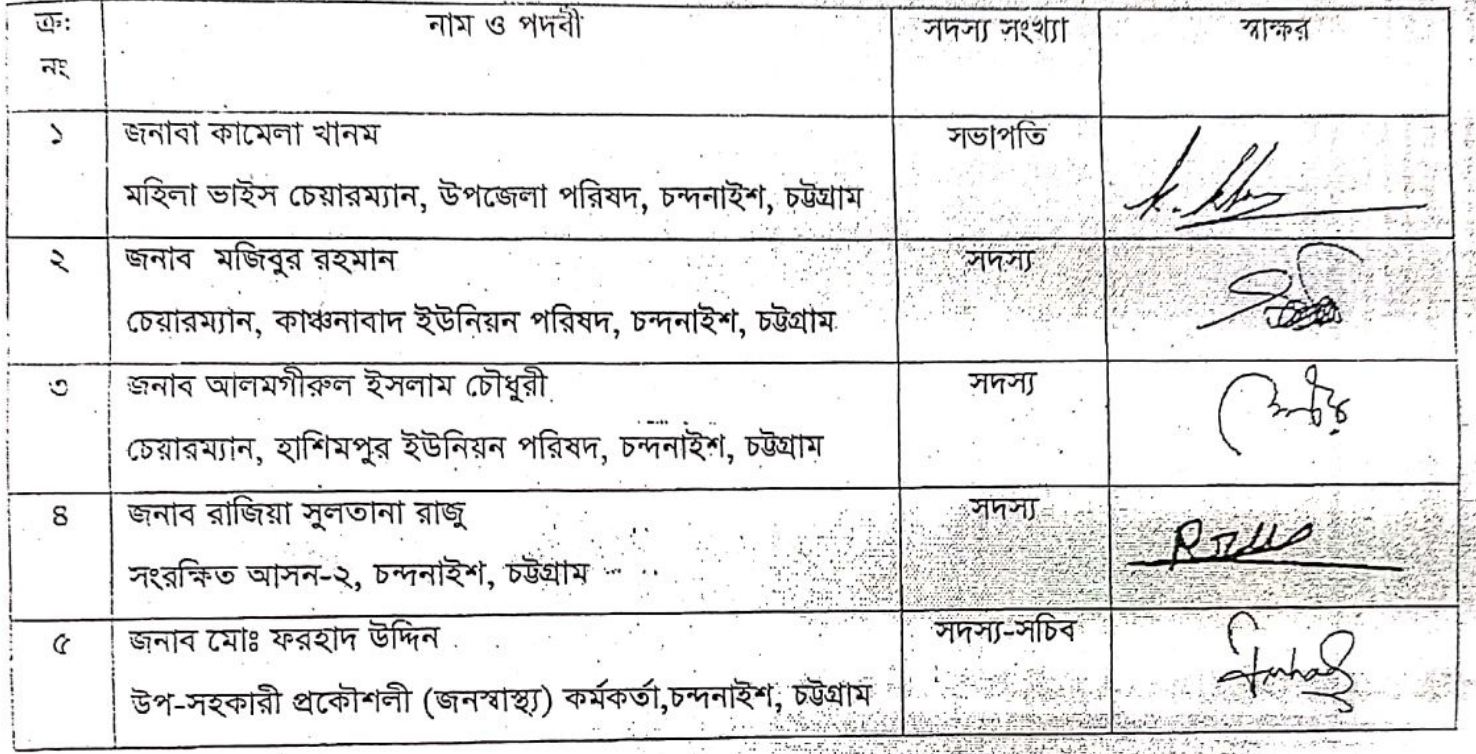 ক্র: নাম ও পদবী সদস্য সংখ্যা স্বাক্ষর
নং
১ জনাবা কামেলা খানম সভাপতি
মহিলা ভাইস চেয়ারম্যান, উপজেলা পরিষদ, চন্দনাইশ, চট্টগ্রাম
২ জনাব মজিবুর রহমান সদস্য
চেয়ারম্যান, কাঞ্চনাবাদ ইউনিয়ন পরিষদ, চন্দনাইশ, চট্টগ্রাম
৩ জনাব আলমগীরুল ইসলাম চৌধুরী সদস্য
চেয়ারম্যান, হাশিমপুর ইউনিয়ন পরিষদ, চন্দনাইশ, চট্টগ্রাম
৪ জনাব রাজিয়া সুলতানা রাজু সদস্য
সংরক্ষিত আসন-২, চন্দনাইশ, চট্টগ্রাম
৫ জনাব মোঃ ফরহাদ উদ্দিন সদস্য-সচিব
উপ-সহকারী প্রকৌশলী (জনস্বাস্থ্য) কর্মকর্তা,চন্দনাইশ, চট্টগ্রাম